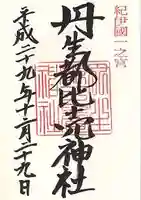 紀伊國一之宮
丹生都比売神社
平成二十九年十二月二十九日